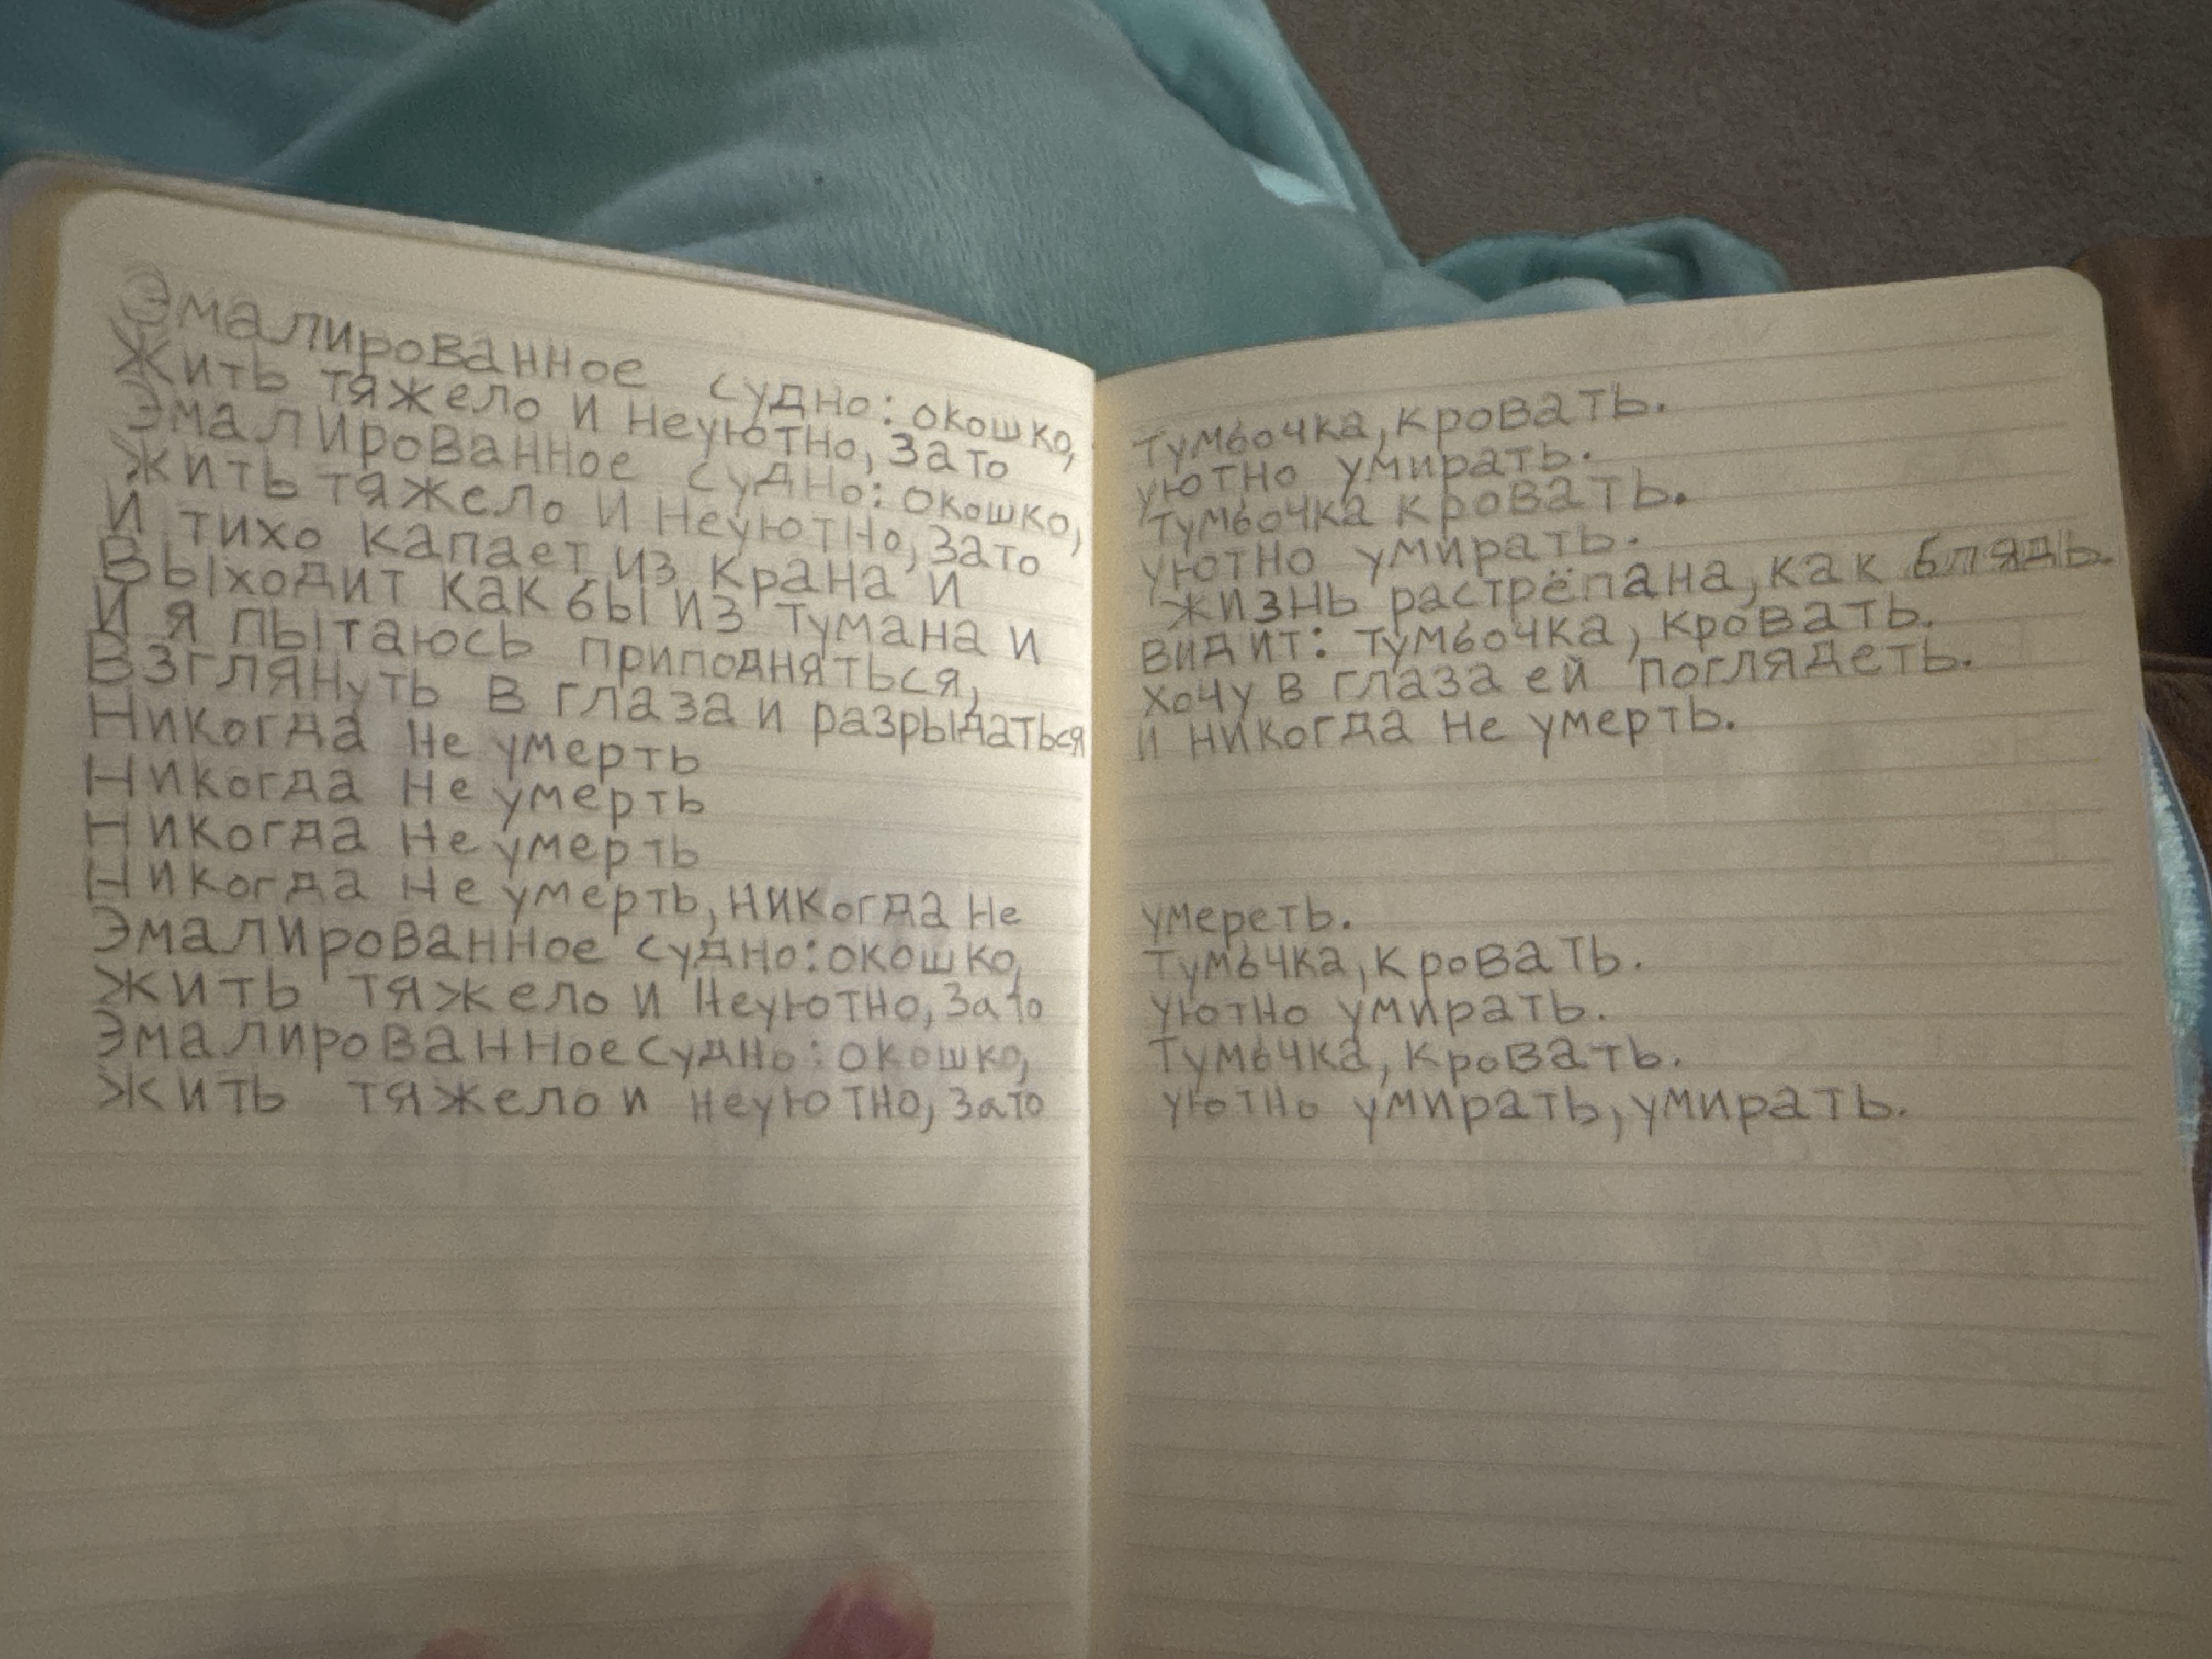 Эмалированное судно: окошко,
Жить тяжело и неуютно, зато
Эмалированное судно: окошко,
Жить тяжело и неуютно, зато
И тихо капает из крана и
Выходит как бы из тумана и
И я пытаюсь приподняться,
Взглянуть в глаза и разрыдаться
Никогда не умерть
Никогда не умерть
Никогда не умерть
Никогда не умерть, никогда не
Эмалированное судно: окошко,
Жить тяжело и неуютно, зато
Эмалированное судно: окошко,
Жить тяжело и неуютно, зато
тумбочка, кровать.
уютно умирать.
тумбочка кровать.
уютно умирать.
жизнь растрёпана, как блядь.
видит: тумбочка, кровать.
хочу в глаза ей поглядеть.
и никогда не умерть.
умереть.
Тумбчка, кровать.
уютно умирать.
Тумбчка, кровать.
уютно умирать, умирать.